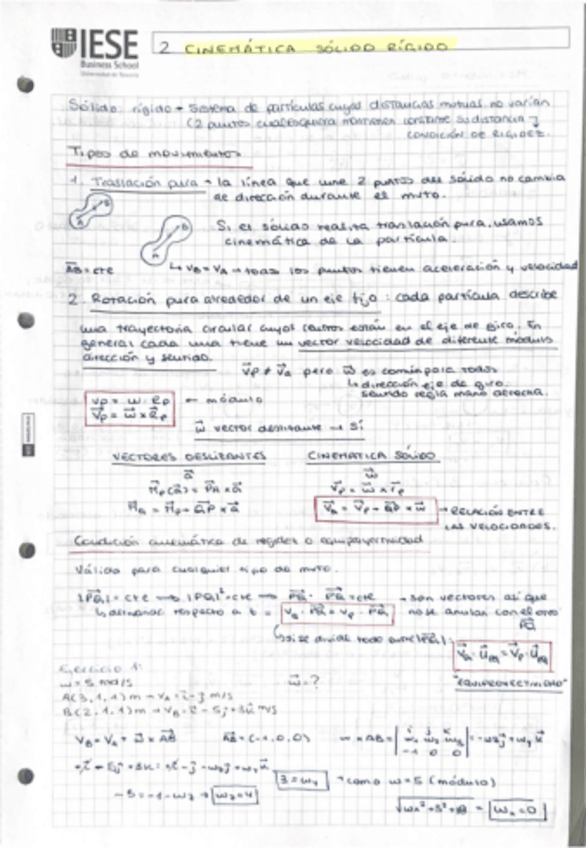 IESE
Business School
Universidad de Navarra
2 CINEMÁTICA SÓLIDO RÍGIDO
Sólido rígido → Sistema de partículas cuyas distancias mutuas no varían
(2 puntos cualesquiera mantienen constante su distancia)
CONDICIÓN DE RIGIDEZ.
Tipos de movimientos
1. Traslación pura → la línea que une 2 puntos del sólido no cambia
de dirección durante el mvto.
Si el sólido realiza translación pura, usamos
cinemática de la partícula.
AB = cte
↳ VB = VA → todos los puntos tienen aceleración y velocidad
2. Rotación pura alrededor de un eje fijo: cada partícula describe
una trayectoria circular cuyos centros están en el eje de giro. En
general cada una tiene un vector velocidad de diferente módulo,
dirección y sentido.
pero w es común para todos
↳ dirección eje de giro.
según regla mano derecha.
vp = w · Rp ← módulo
vp = w × Rp
w vector deslizante → Sí
VECTORES DESLIZANTES CINEMÁTICA SÓLIDO
RELACIÓN ENTRE
LAS VELOCIDADES.
Condición cinemática de rigidez o equiproyectividad
Válido para cualquier tipo de mvto.
|PQ| = cte ⟹ |PQ|² = cte ⟹ PQ · PQ = cte → son vectores así que
no se anulan con el otro
PQ
derivamos respecto a t = vQ · PQ = vP · PQ
si se divide todo entre |PQ|:
"EQUIPROYECTIVIDAD"
Ejercicio 1:
w = 5 rad/s w = ?
A(3,1,1) m → vA = i - j m/s
B(2,1,1) m → vB = i - 5j + 3k m/s
VB = VA + w × AB AB = (-1,0,0)
3 = wy → como w = 5 (módulo)
-5 = -1 - wz → wz = 4
wx = 0